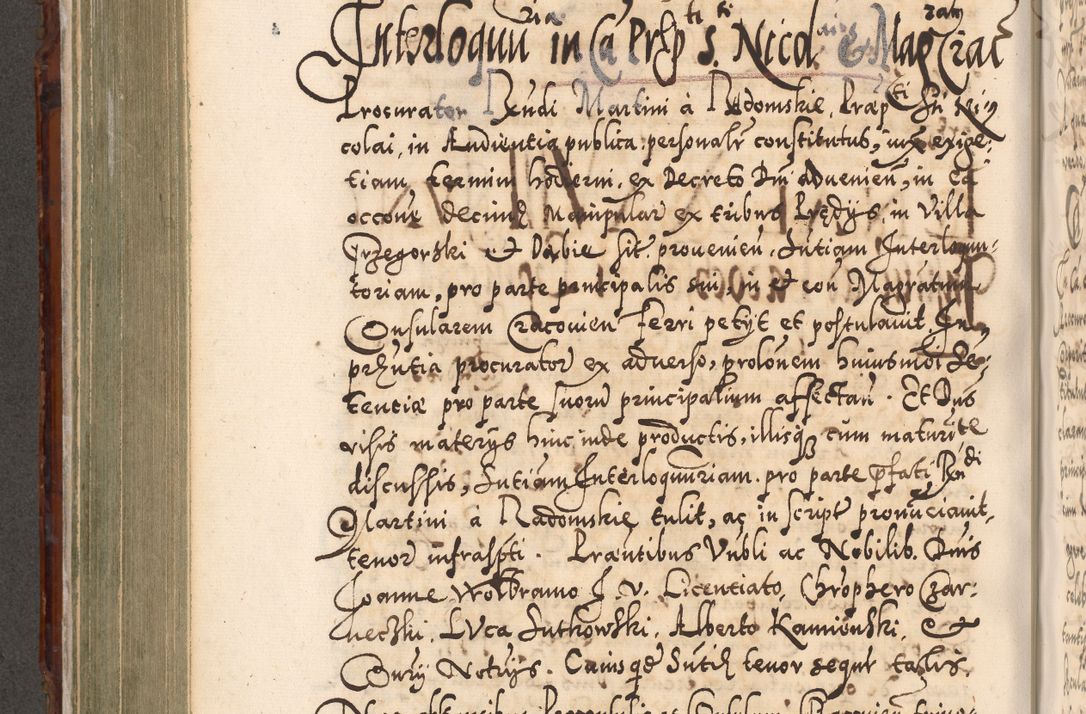 Interloquu ria in Ca Pręp ti S. ti Nicol. & Mag ram Crac
Procurator Rndi Martini à Radomskie, Præp ti Sti Ni
colai, in Audientia publica personalr constitutus, in exige
tiam termini hodierni, ex Decreto Dni advenien, in Ca
occone Decimę Manipular ex tribus Prędys, in Villa
Grzegorski et Dąbie sit. provenien. Sntiam Interloqu
toriam, pro parte principalis sui, in et con Magratum
Consularem Cracovien ferri petyt et postulavit. In
pñtia procurator ex adverso, prolonem huiusmoi Se
tentiæ pro parte suoru principalium affectan. Et Dns
visis materys hinc inde productis, illisq cum maturite
discussis, Sntiam Interloquuriam pro parte pfati Rndi
Martini à Radomskie tulit, ac in script pronuciavit,
tenor infraspti. Præntibus Vnbli ac Nobilib. Dnis
Joanne Wolbramo J. V. Licentiato, Chrophero Czar
neczki, Lvca Sutkowski, Alberto Kamionski, &
Coury Notrys. Cuiusqde Sntię tenor sequr talis.